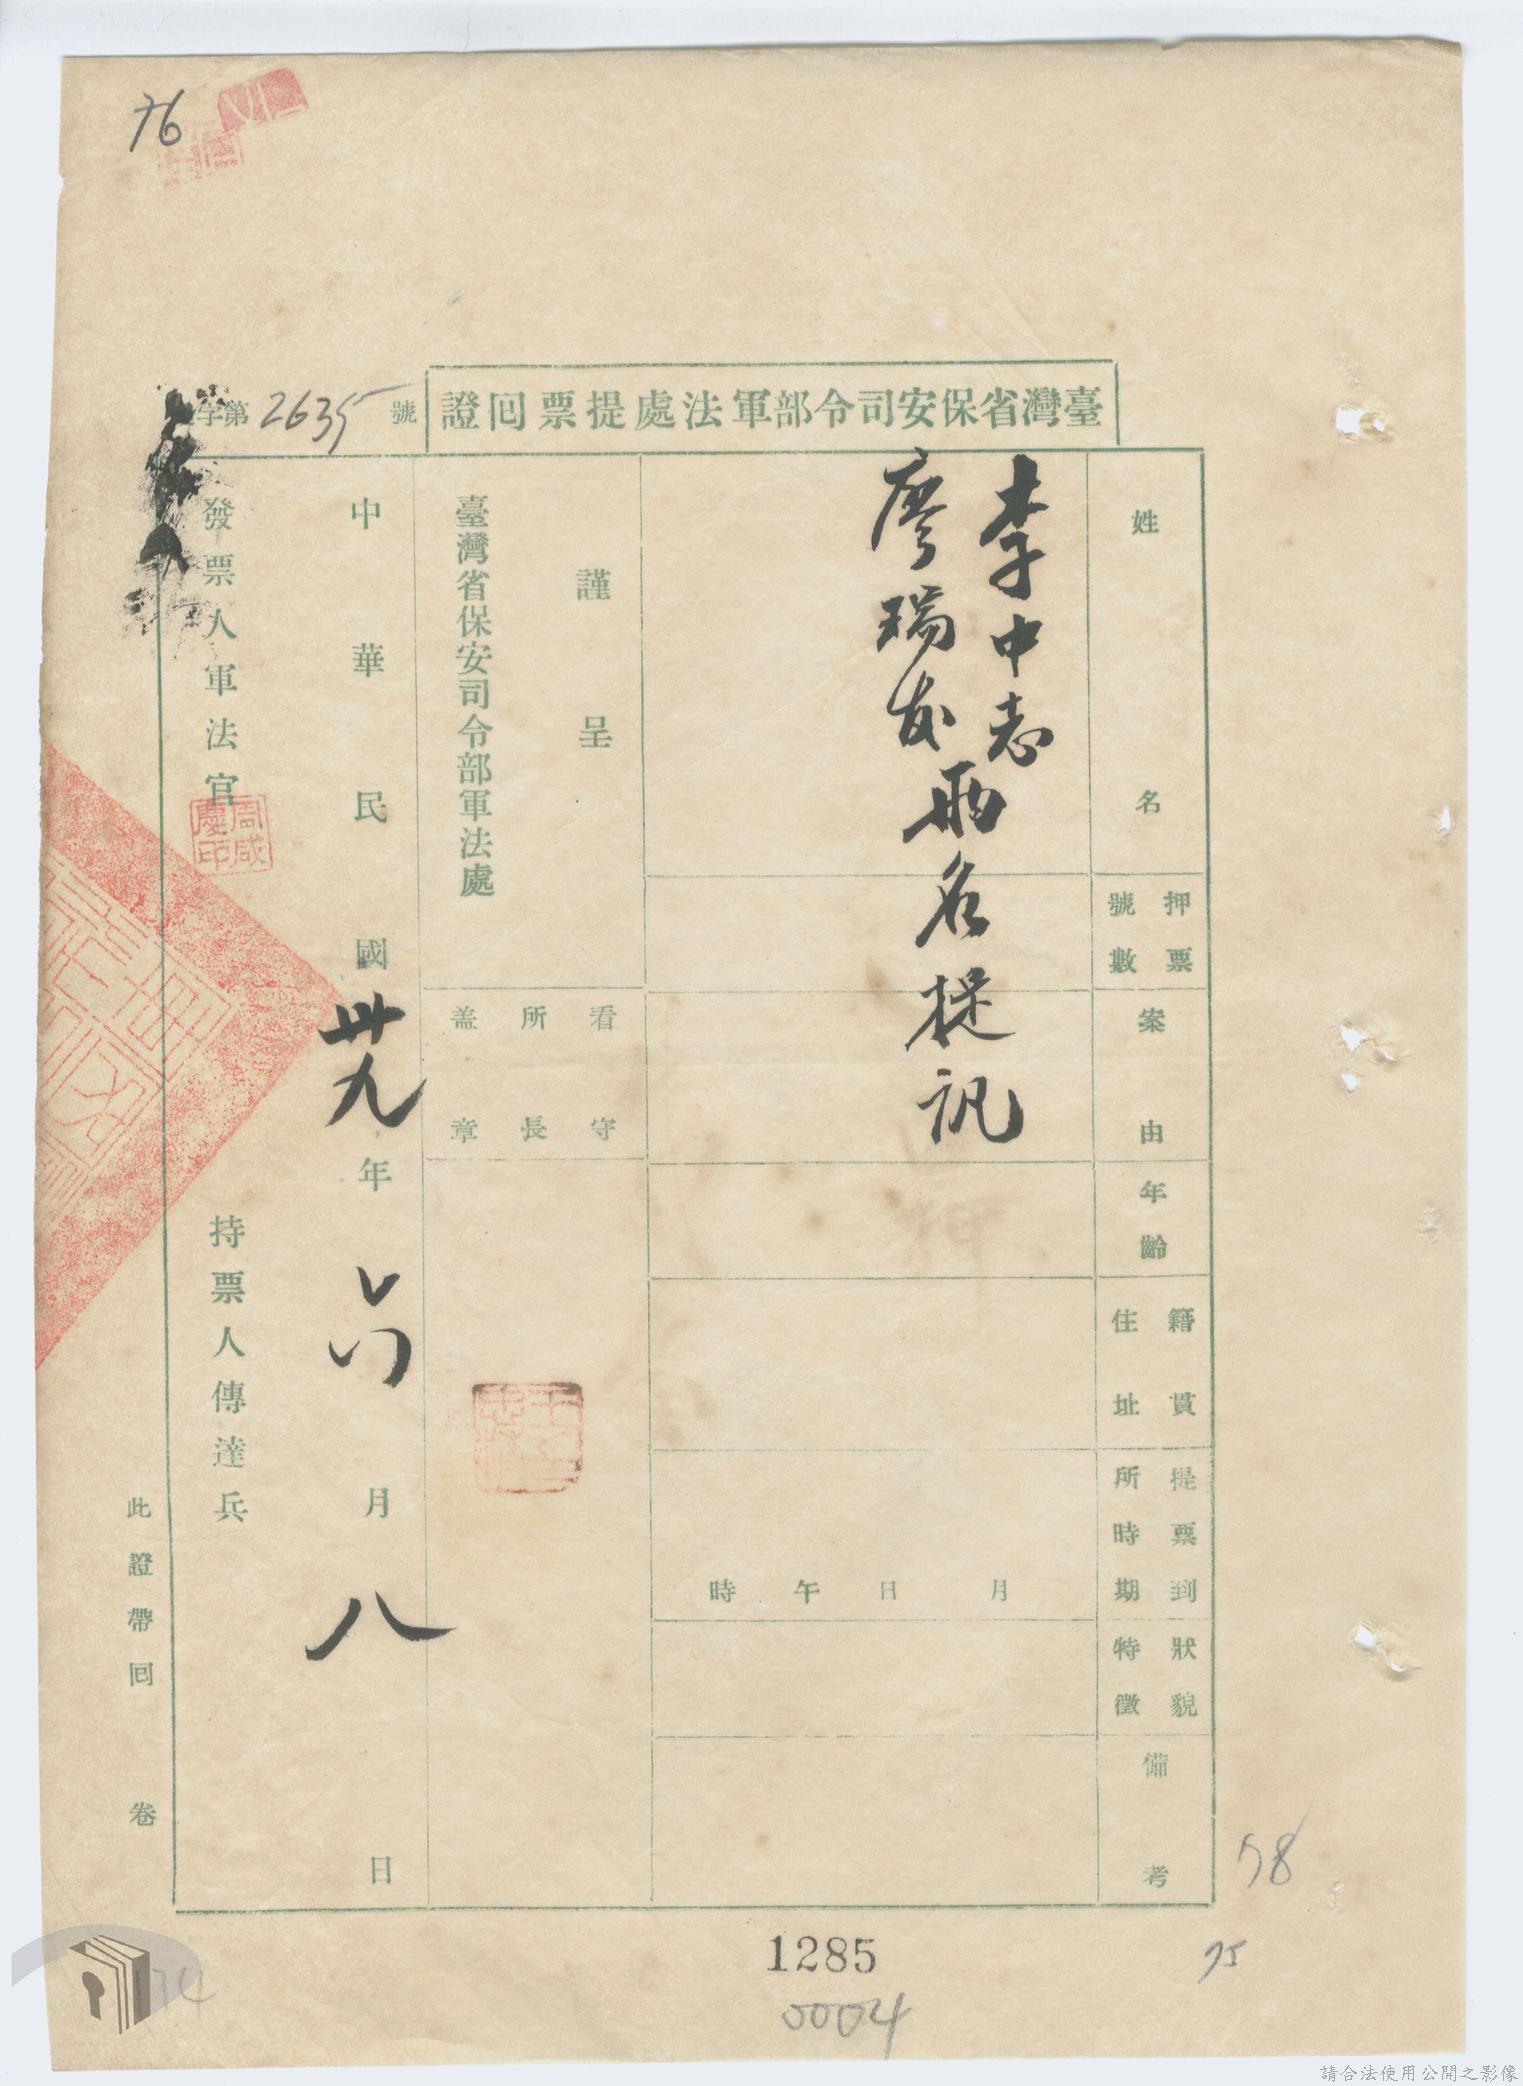 76
臺灣省保安司令部軍法處提票囘證
字第2635號
姓名
李中志
廖瑞发
兩名提訊
押票號數
案由
年齡
籍貫住址
提票到所時期
月日午時
狀貌特徵
備考
謹呈
臺灣省保安司令部軍法處
看守所長盖章
中華民國卅九年六月八日
發票人軍法官
周咸慶印
持票人傳達兵
此證帶囘 卷
58
75
74
1285
0004
請合法使用公開之影像